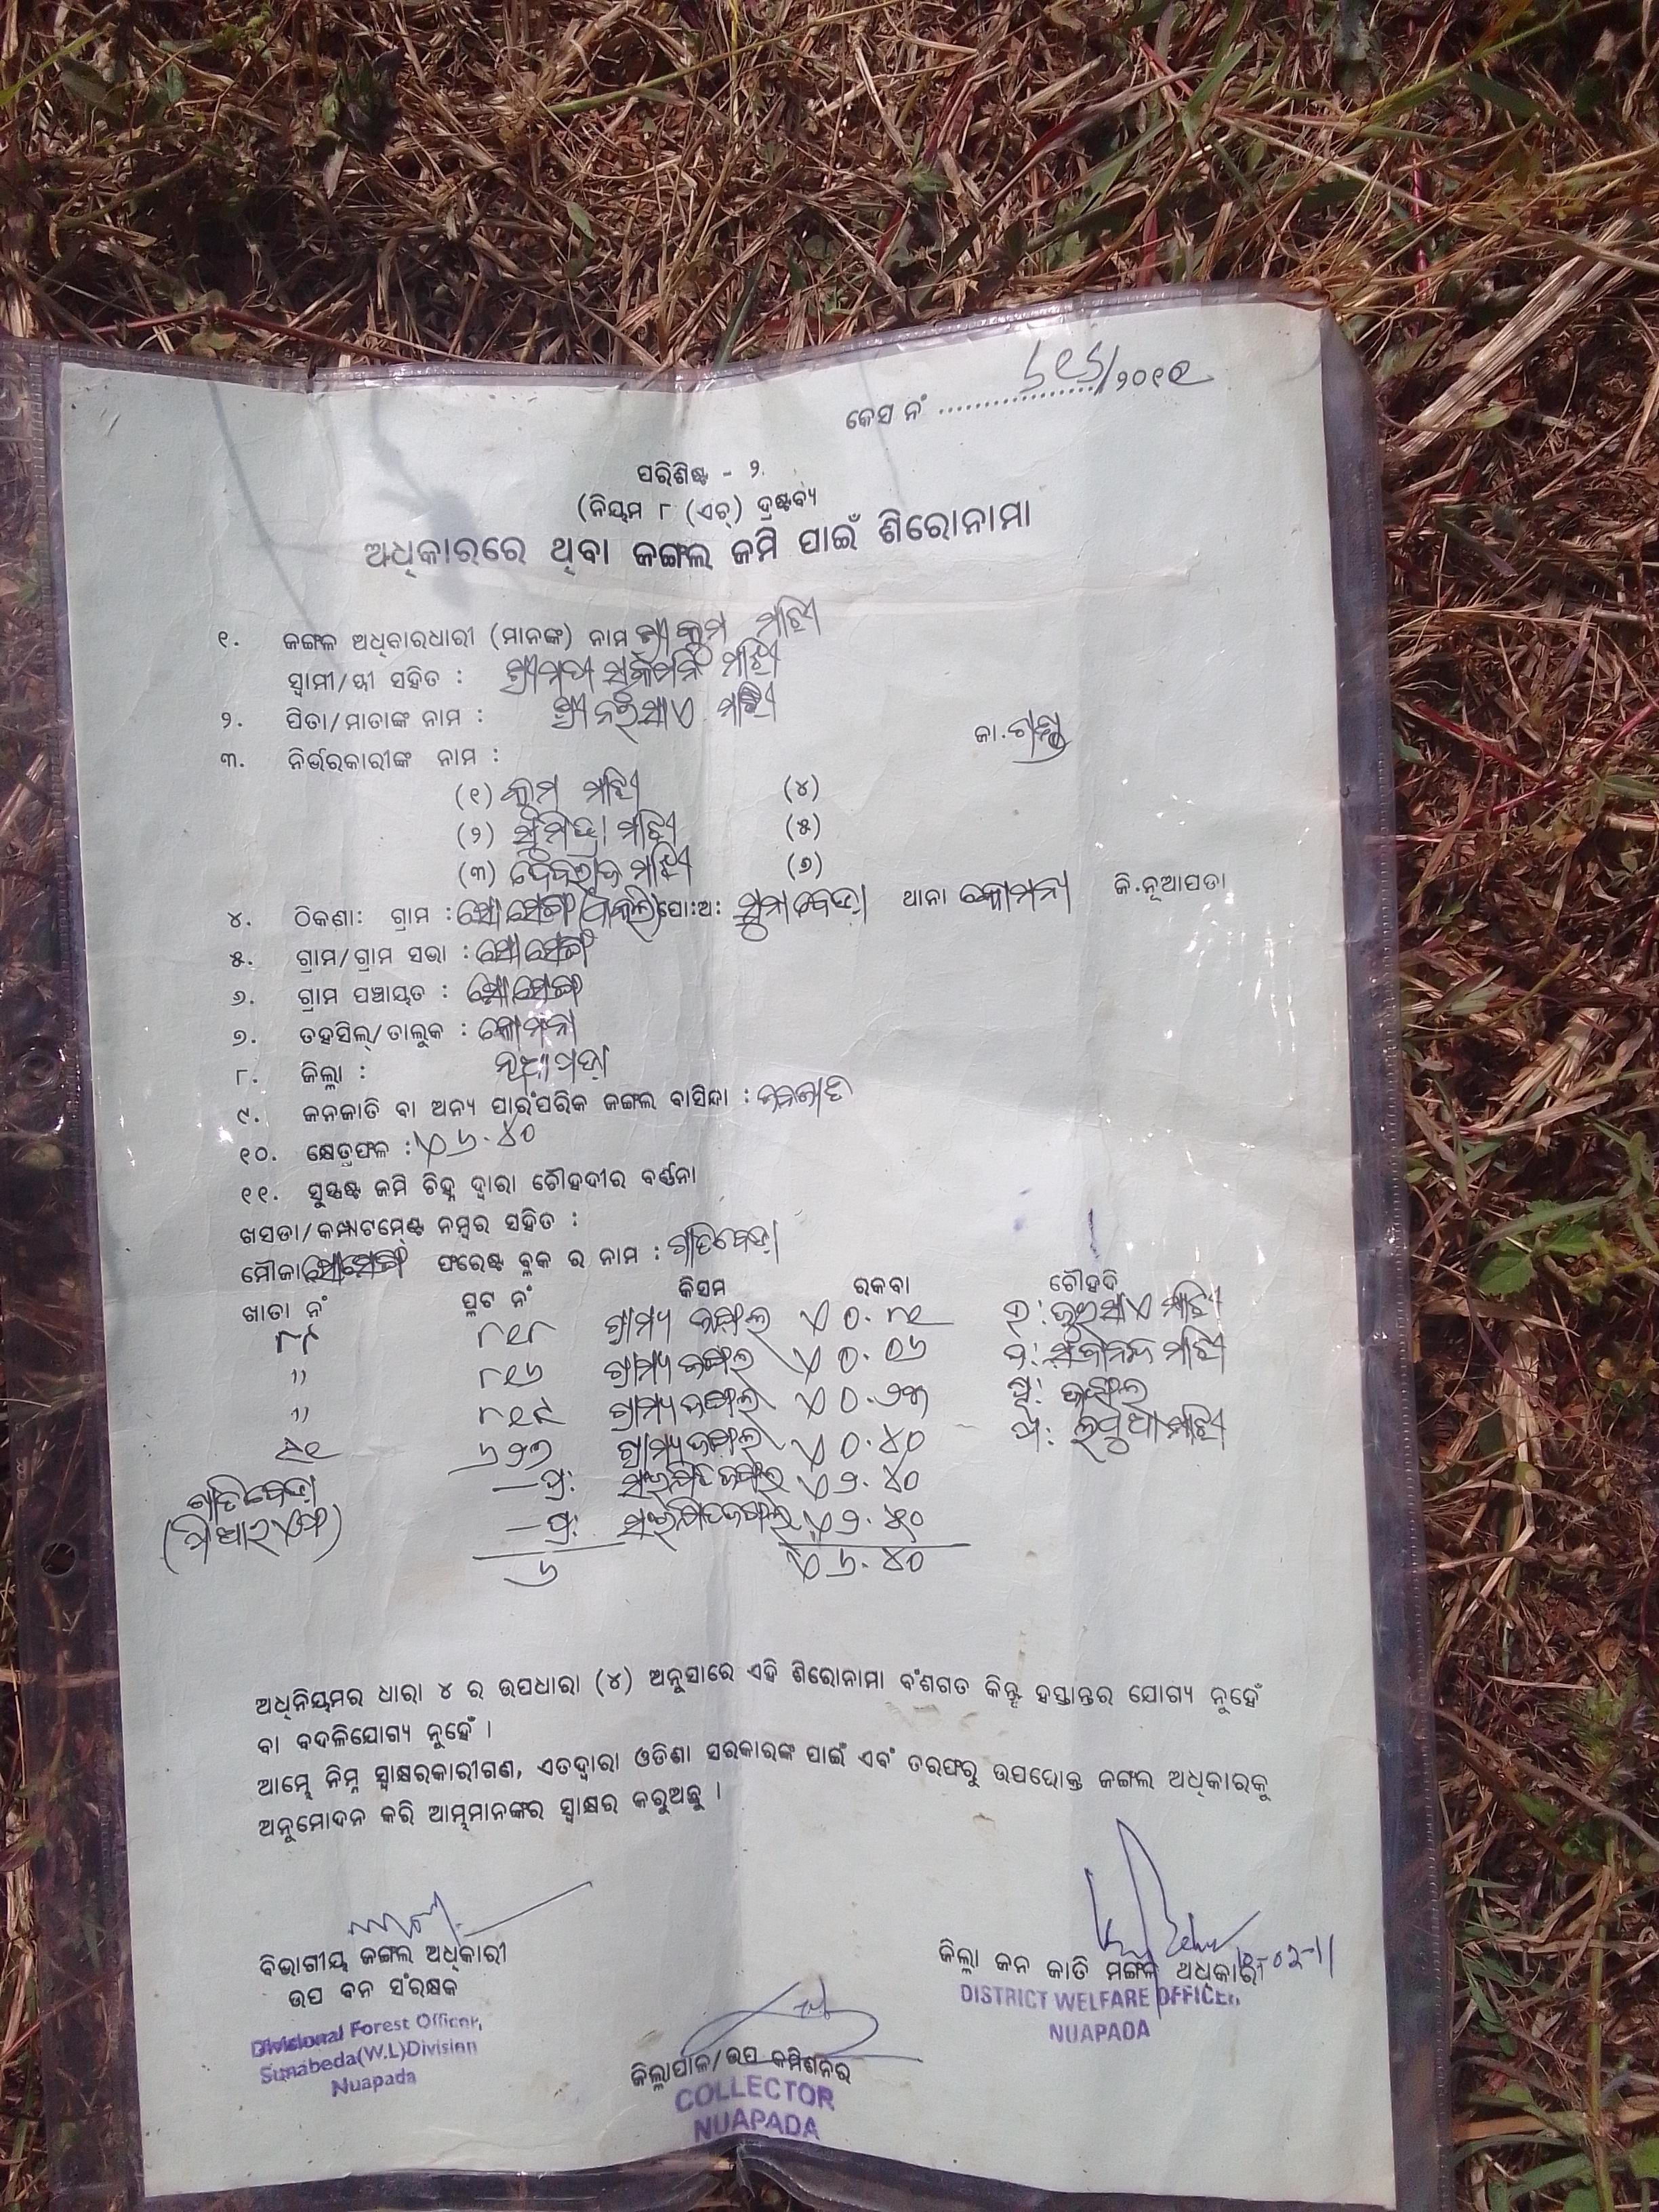 କେସ ନଂ ................../୨୦୧୧
ପରିଶିଷ୍ଟ - ୨
(ନିୟମ ୮ (ଏଚ୍) ଦ୍ରଷ୍ଟବ୍ୟ
ଅଧିକାରରେ ଥିବା ଜଙ୍ଗଲ ଜମି ପାଇଁ ଶିରୋନାମା
୧. ଜଙ୍ଗଳ ଅଧିକାରଧାରୀ (ମାନଙ୍କ) ନାମ ଶ୍ରୀ କୁମ ମାଝି
ସ୍ୱାମୀ/ସ୍ତ୍ରୀ ସହିତ : ଶ୍ରୀମତୀ ମାଝି
୨. ପିତା/ମାତାଙ୍କ ନାମ : ଶ୍ରୀ ମାଝି
ଜା.
୩. ନିର୍ଭରକାରୀଙ୍କ ନାମ :
(୧) କୁମ ମାଝି (୪)
(୨) ସୁମିତ୍ରା ମାଝି (୫)
(୩) ଦେବରାଜ ମାଝି (୬)
୪. ଠିକଣା: ଗ୍ରାମ : ପୋ:ଅ: ସୁନାବେଡ଼ା ଥାନା କୋମନା ଜି.ନୂଆପଡା
୫. ଗ୍ରାମ/ଗ୍ରାମ ସଭା :
୬. ଗ୍ରାମ ପଞ୍ଚାୟତ :
୭. ତହସିଲ୍/ତାଲୁକ : କୋମନା
୮. ଜିଲ୍ଲା : ନୂଆପଡ଼ା
୯. ଜନଜାତି ବା ଅନ୍ୟ ପାରଂପରିକ ଜଙ୍ଗଲ ବାସିନ୍ଦା : ଜନଜାତି
୧୦. କ୍ଷେତ୍ରଫଳ : ଏ ୦୬.୪୦
୧୧. ସୁସ୍ପଷ୍ଟ ଜମି ଚିହ୍ନ ଦ୍ୱାରା ଚୌହଦୀର ବର୍ଣ୍ଣନା
ଖସଡା/କମ୍ପାଟମେଣ୍ଟ ନମ୍ବର ସହିତ :
ମୌଜା ଫରେଷ୍ଟ ବ୍ଲକ ର ନାମ : ଗାତିବେଡ଼ା
ଖାତା ନଂ ପ୍ଳଟ ନଂ କିସମ ରକବା ଚୌହଦି
୮୯ ୮୧୮ ଗ୍ରାମ୍ୟ ଜଙ୍ଗଲ ଏ ୦.୮୧ ଉ: ମାଝି
୮୧୬ ଗ୍ରାମ୍ୟ ଜଙ୍ଗଲ ଏ ୦.୦୬ ଦ: ମାଝି
୮୧୯ ଗ୍ରାମ୍ୟ ଜଙ୍ଗଲ ଏ ୦.୨୩ ପୂ: ଜଙ୍ଗଲ
୬୨୭ ଗ୍ରାମ୍ୟ ଜଙ୍ଗଲ ଏ ୦.୪୦ ପ: ମାଝି
ଗାତିବେଡ଼ା — ପ୍ର: ଏ ୨.୪୦
(ପିଆରଏଫ) — ପ୍ର: ଏ ୨.୫୦
୬ ଏ ୦୬.୪୦
ଅଧିନିୟମର ଧାରା ୪ ର ଉପଧାରା (୪) ଅନୁସାରେ ଏହି ଶିରୋନାମା ବଂଶଗତ କିନ୍ତୁ ହସ୍ତାନ୍ତର ଯୋଗ୍ୟ ନୁହେଁ
ବା ବଦଳିଯୋଗ୍ୟ ନୁହେଁ ।
ଆମ୍ଭେ ନିମ୍ନ ସ୍ୱାକ୍ଷରକାରୀଗଣ, ଏତଦ୍ୱାରା ଓଡିଶା ସରକାରଙ୍କ ପାଇଁ ଏବଂ ତରଫରୁ ଉପରୋକ୍ତ ଜଙ୍ଗଲ ଅଧିକାରକୁ
ଅନୁମୋଦନ କରି ଆମ୍ଭମାନଙ୍କର ସ୍ୱାକ୍ଷର କରୁଅଛୁ ।
ବିଭାଗୀୟ ଜଙ୍ଗଲ ଅଧିକାରୀ
ଉପ ବନ ସଂରକ୍ଷକ
Divisional Forest Officer,
Sunabeda(W.L)Division
Nuapada
ଜିଲ୍ଲାପାଳ/ଉପ କମିଶନର
COLLECTOR
NUAPADA
ଜିଲ୍ଲା ଜନ ଜାତି ମଙ୍ଗଳ ଅଧିକାରୀ
DISTRICT WELFARE OFFICER,
NUAPADA